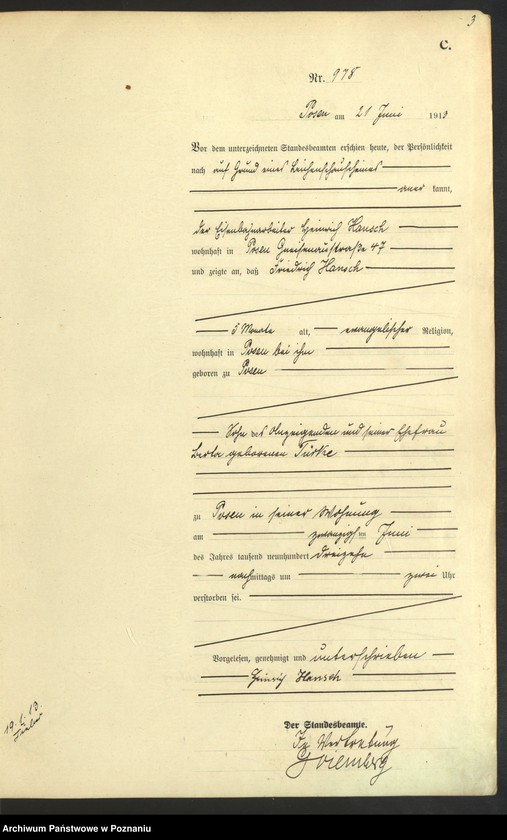 3
C.
Nr. 978
Posen am 21 Juni 1913
Vor dem unterzeichneten Standesbeamten erschien heute, der Persönlichkeit
nach auf Grund eines Leichenschauscheines
aner kannt,
der Eisenbahnarbeiter Heinrich Hansch
wohnhaft in Posen Gneisenaustraße 47
und zeigte an, daß Friedrich Hansch
5 Monate alt, evangelischer Religion,
wohnhaft in Posen bei ihm
geboren zu Posen
Sohn des Anzeigenden und seiner Ehefrau
Berta geborenen Türke
zu Posen in seiner Wohnung
am zwanzigsten Juni
des Jahres tausend neunhundert dreizehn
nachmittags um zwei Uhr
verstorben sei.
Vorgelesen, genehmigt und unterschrieben
Heinrich Hansch
Der Standesbeamte.
In Vertretung
Archiwum Państwowe w Poznaniu